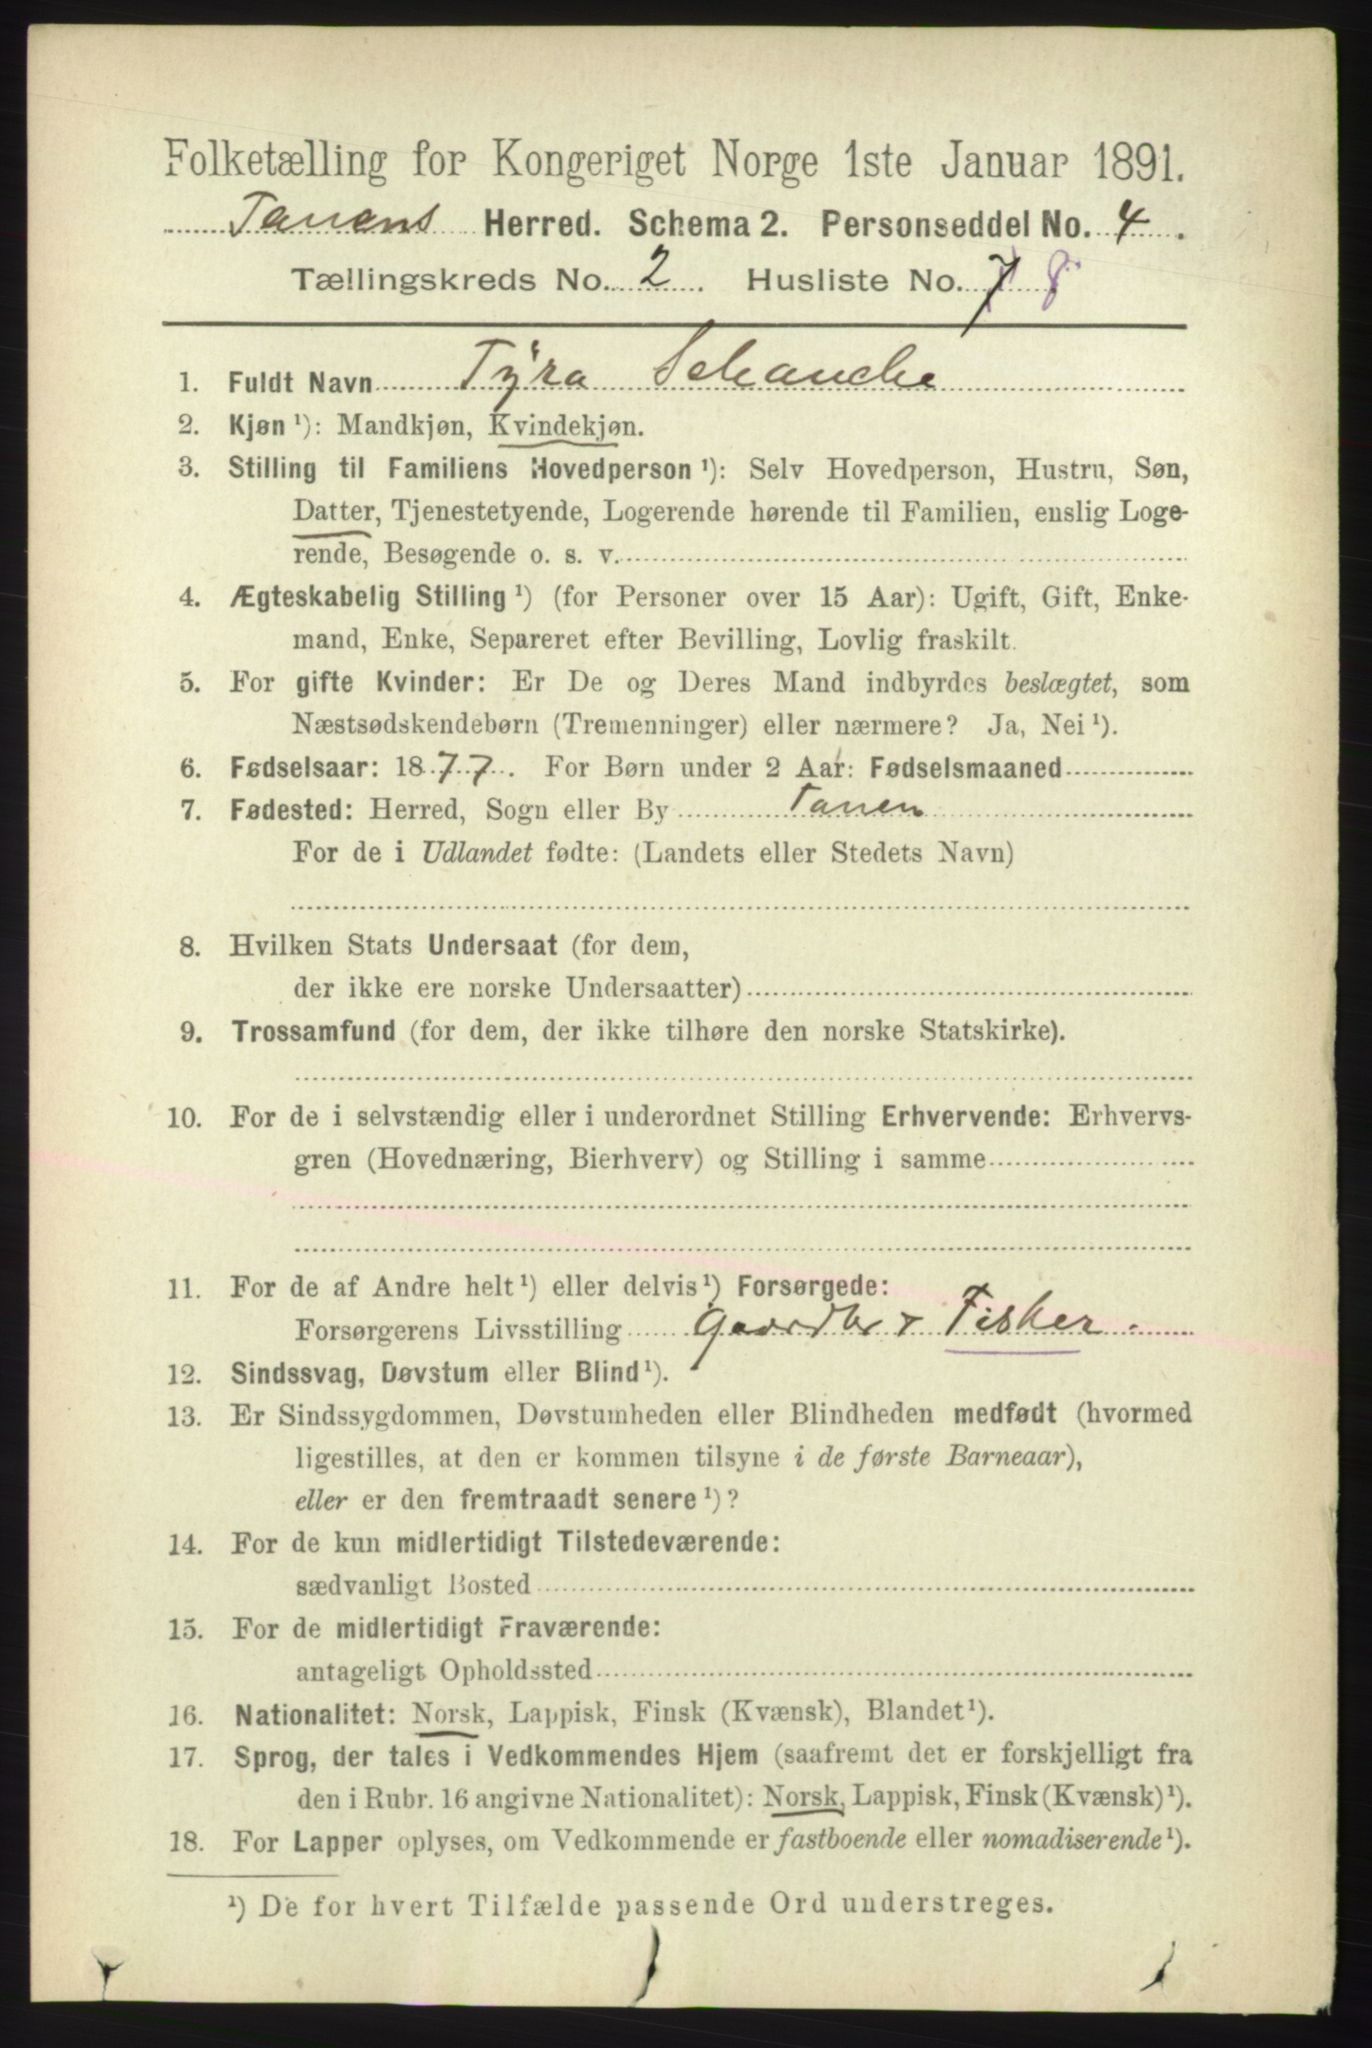 Folketælling for Kongeriget Norge 1ste Januar 1891.
Tanens Herred. Schema 2. Personseddel No. 4.
Tællingskreds No. 2. Husliste No. 7 8
1. Fuldt Navn Tÿra Schanche
2. Kjøn ¹): Mandkjøn, Kvindekjøn.
3. Stilling til Familiens Hovedperson ¹): Selv Hovedperson, Hustru, Søn,
Datter, Tjenestetyende, Logerende hørende til Familien, enslig Loge-
rende, Besøgende o. s. v.
4. Ægteskabelig Stilling ¹) (for Personer over 15 Aar): Ugift, Gift, Enke-
mand, Enke, Separeret efter Bevilling, Lovlig fraskilt.
5. For gifte Kvinder: Er De og Deres Mand indbyrdes beslægtet, som
Næstsødskendebørn (Tremenninger) eller nærmere? Ja, Nei ¹).
6. Fødselsaar: 1877. For Børn under 2 Aar: Fødselsmaaned
7. Fødested: Herred, Sogn eller By Tanen
For de i Udlandet fødte: (Landets eller Stedets Navn)
8. Hvilken Stats Undersaat (for dem,
der ikke ere norske Undersaatter)
9. Trossamfund (for dem, der ikke tilhøre den norske Statskirke).
10. For de i selvstændig eller i underordnet Stilling Erhvervende: Erhvervs-
gren (Hovednæring, Bierhverv) og Stilling i samme
11. For de af Andre helt ¹) eller delvis ¹) Forsørgede:
Forsørgerens Livsstilling Gaardbr & Fisker.
12. Sindssvag, Døvstum eller Blind ¹).
13. Er Sindssygdommen, Døvstumheden eller Blindheden medfødt (hvormed
ligestilles, at den er kommen tilsyne i de første Barneaar),
eller er den fremtraadt senere ¹)?
14. For de kun midlertidigt Tilstedeværende:
sædvanligt Bosted
15. For de midlertidigt Fraværende:
antageligt Opholdssted
16. Nationalitet: Norsk, Lappisk, Finsk (Kvænsk), Blandet ¹).
17. Sprog, der tales i Vedkommendes Hjem (saafremt det er forskjelligt fra
den i Rubr. 16 angivne Nationalitet): Norsk, Lappisk, Finsk (Kvænsk) ¹).
18. For Lapper oplyses, om Vedkommende er fastboende eller nomadiserende ¹).
¹) De for hvert Tilfælde passende Ord understreges.